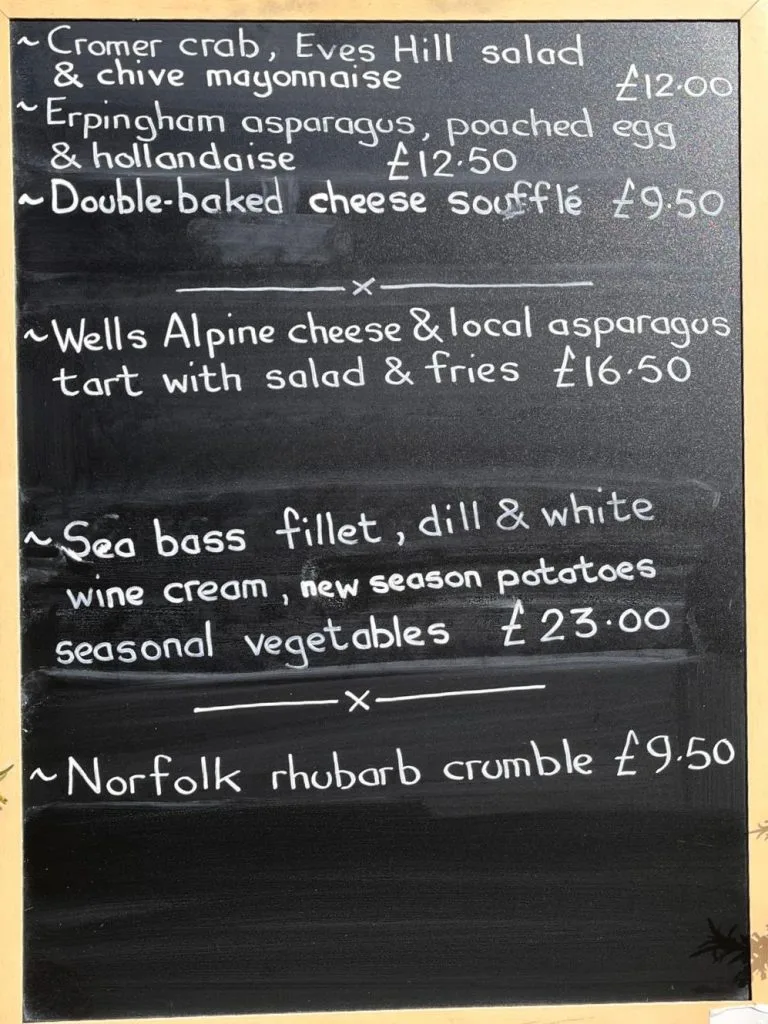 ~ Cromer crab, Eves Hill salad
& chive mayonnaise £12.00
~ Erpingham asparagus, poached egg
& hollandaise £12.50
~ Double-baked cheese soufflé £9.50
x
~ Wells Alpine cheese & local asparagus
tart with salad & fries £16.50
~ Sea bass fillet, dill & white
wine cream, new season potatoes
seasonal vegetables £23.00
x
~ Norfolk rhubarb crumble £9.50